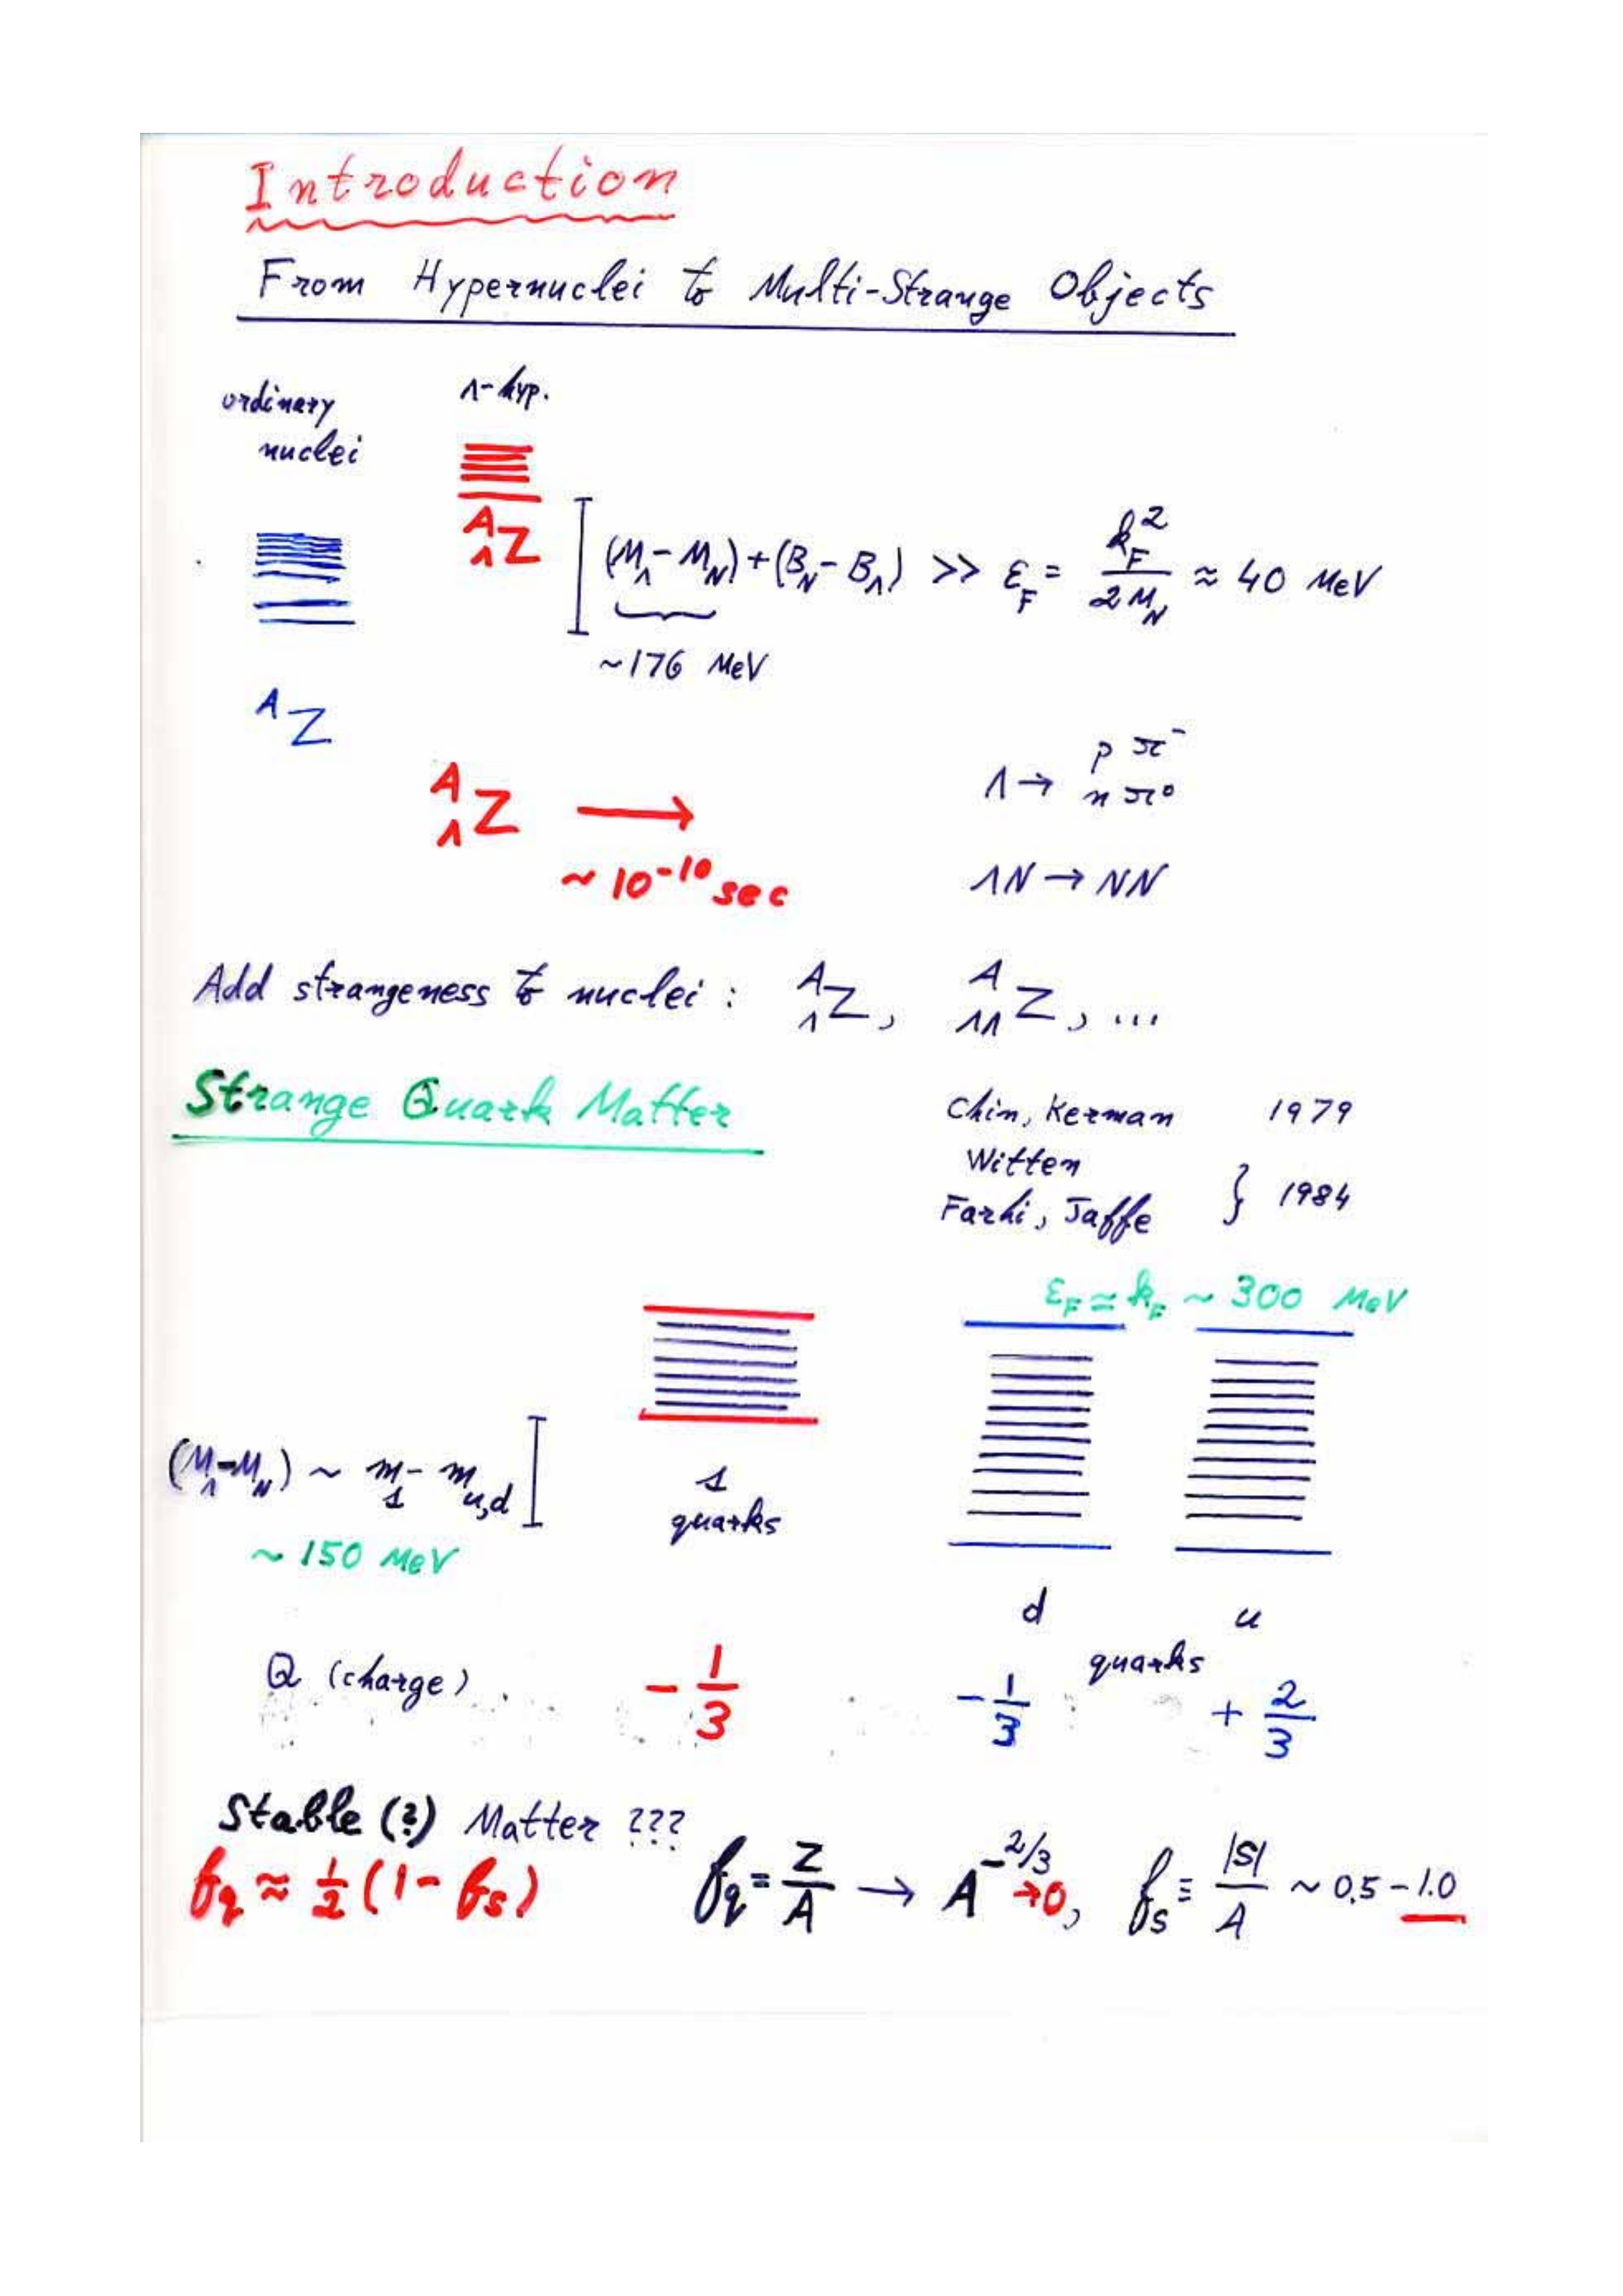 Introduction
From Hypernuclei to Multi-Strange Objects
ordinary
nuclei
Λ-hyp.
A Z
Λ
(M_Λ - M_N) + (B_N - B_Λ) >> ε_F = k_F^2 / 2M_N ≈ 40 MeV
~176 MeV
A Z
Λ → p π^-
n π^0
A Z →
Λ
~ 10^-10 sec
ΛN → NN
Add strangeness to nuclei : ^A_Λ Z, ^A_ΛΛ Z, ...
Strange Quark Matter
Chin, Kerman 1979
Witten
Farhi, Jaffe } 1984
ε_F ≃ k_F ~ 300 MeV
(M_Λ - M_N) ~ m_s - m_u,d
~ 150 MeV
s
quarks
d u
quarks
Q (charge) -1/3 -1/3 +2/3
Stable (?) Matter ???
f_q ≈ 1/2 (1 - f_s)
f_q = Z/A → A^-2/3 → 0, f_s ≡ |S|/A ~ 0.5 - 1.0